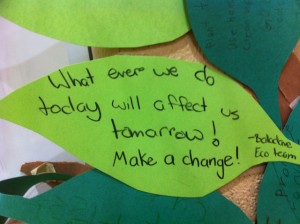 What ever we do
today will affect us
tomorrow!
Make a change!
Eco team